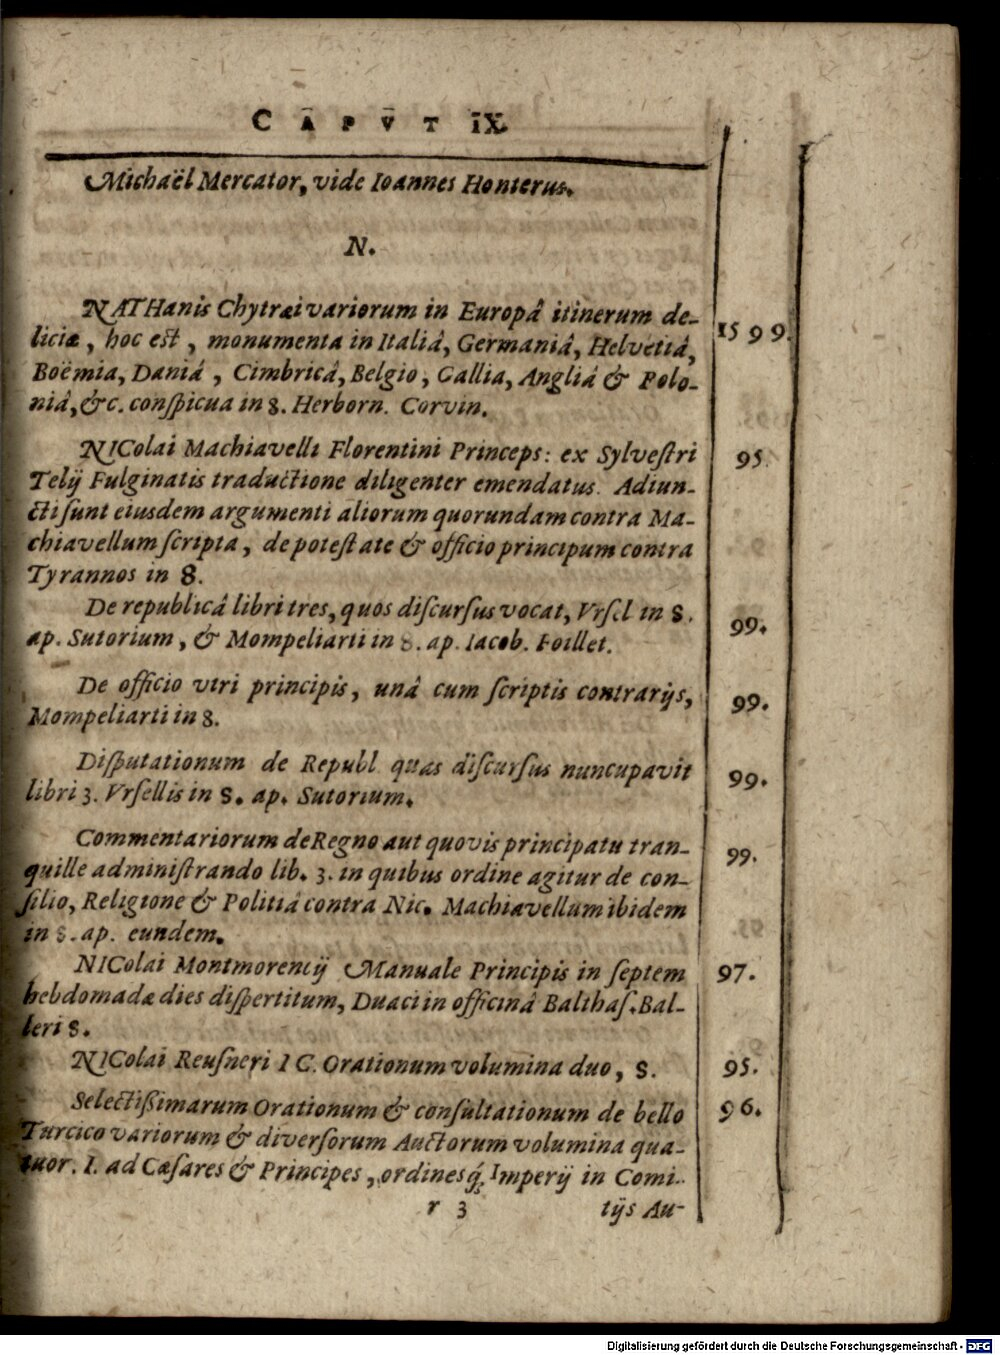 CAPVT IX.
Michaël Mercator, vide Ioannes Honterus.
N.
NATHanis Chytræi variorum in Europâ itinerum de-
liciæ, hoc est, monumenta in Italiâ, Germaniâ, Helvetiâ, 1599.
Boëmia, Daniâ, Cimbricâ, Belgio, Gallia, Angliâ & Polo-
niâ, &c. conſpicua in 8. Herborn. Corvin.
NIColai Machiavelli Florentini Princeps: ex Sylveſtri 95.
Telij Fulginatis traductione diligenter emendatus. Adiun-
cti ſunt eiusdem argumenti aliorum quorundam contra Ma-
chiavellum ſcripta, de poteſtate & officio principum contra
Tyrannos in 8.
De republicâ libri tres, quos diſcurſus vocat, Vrſel in 8. 99.
ap. Sutorium, & Mompeliarti in 8. ap. Iacob. Foillet.
De officio viri principis, unâ cum ſcriptis contrarijs, 99.
Mompeliarti in 8.
Diſputationum de Republ. quas diſcurſus nuncupavit 99.
libri 3. Vrſellis in 8. ap. Sutorium.
Commentariorum de Regno aut quovis principatu tran- 99.
quille adminiſtrando lib. 3. in quibus ordine agitur de con-
ſilio, Religione & Politiâ contra Nic. Machiavellum ibidem
in 8. ap. eundem.
NIColai Montmorencij Manuale Principis in ſeptem 97.
hebdomadæ dies diſpertitum, Duaci in officinâ Balthaſ. Bal-
leri 8.
NIColai Reuſneri I C. Orationum volumina duo, 8. 95.
Selectiſsimarum Orationum & conſultationum de bello 96.
Turcico variorum & diverſorum Auctorum volumina qua-
tuor. I. ad Cæſares & Principes, ordinesq́; Imperij in Comi-
r 3 tijs Au-
Digitalisierung gefördert durch die Deutsche Forschungsgemeinschaft - DFG